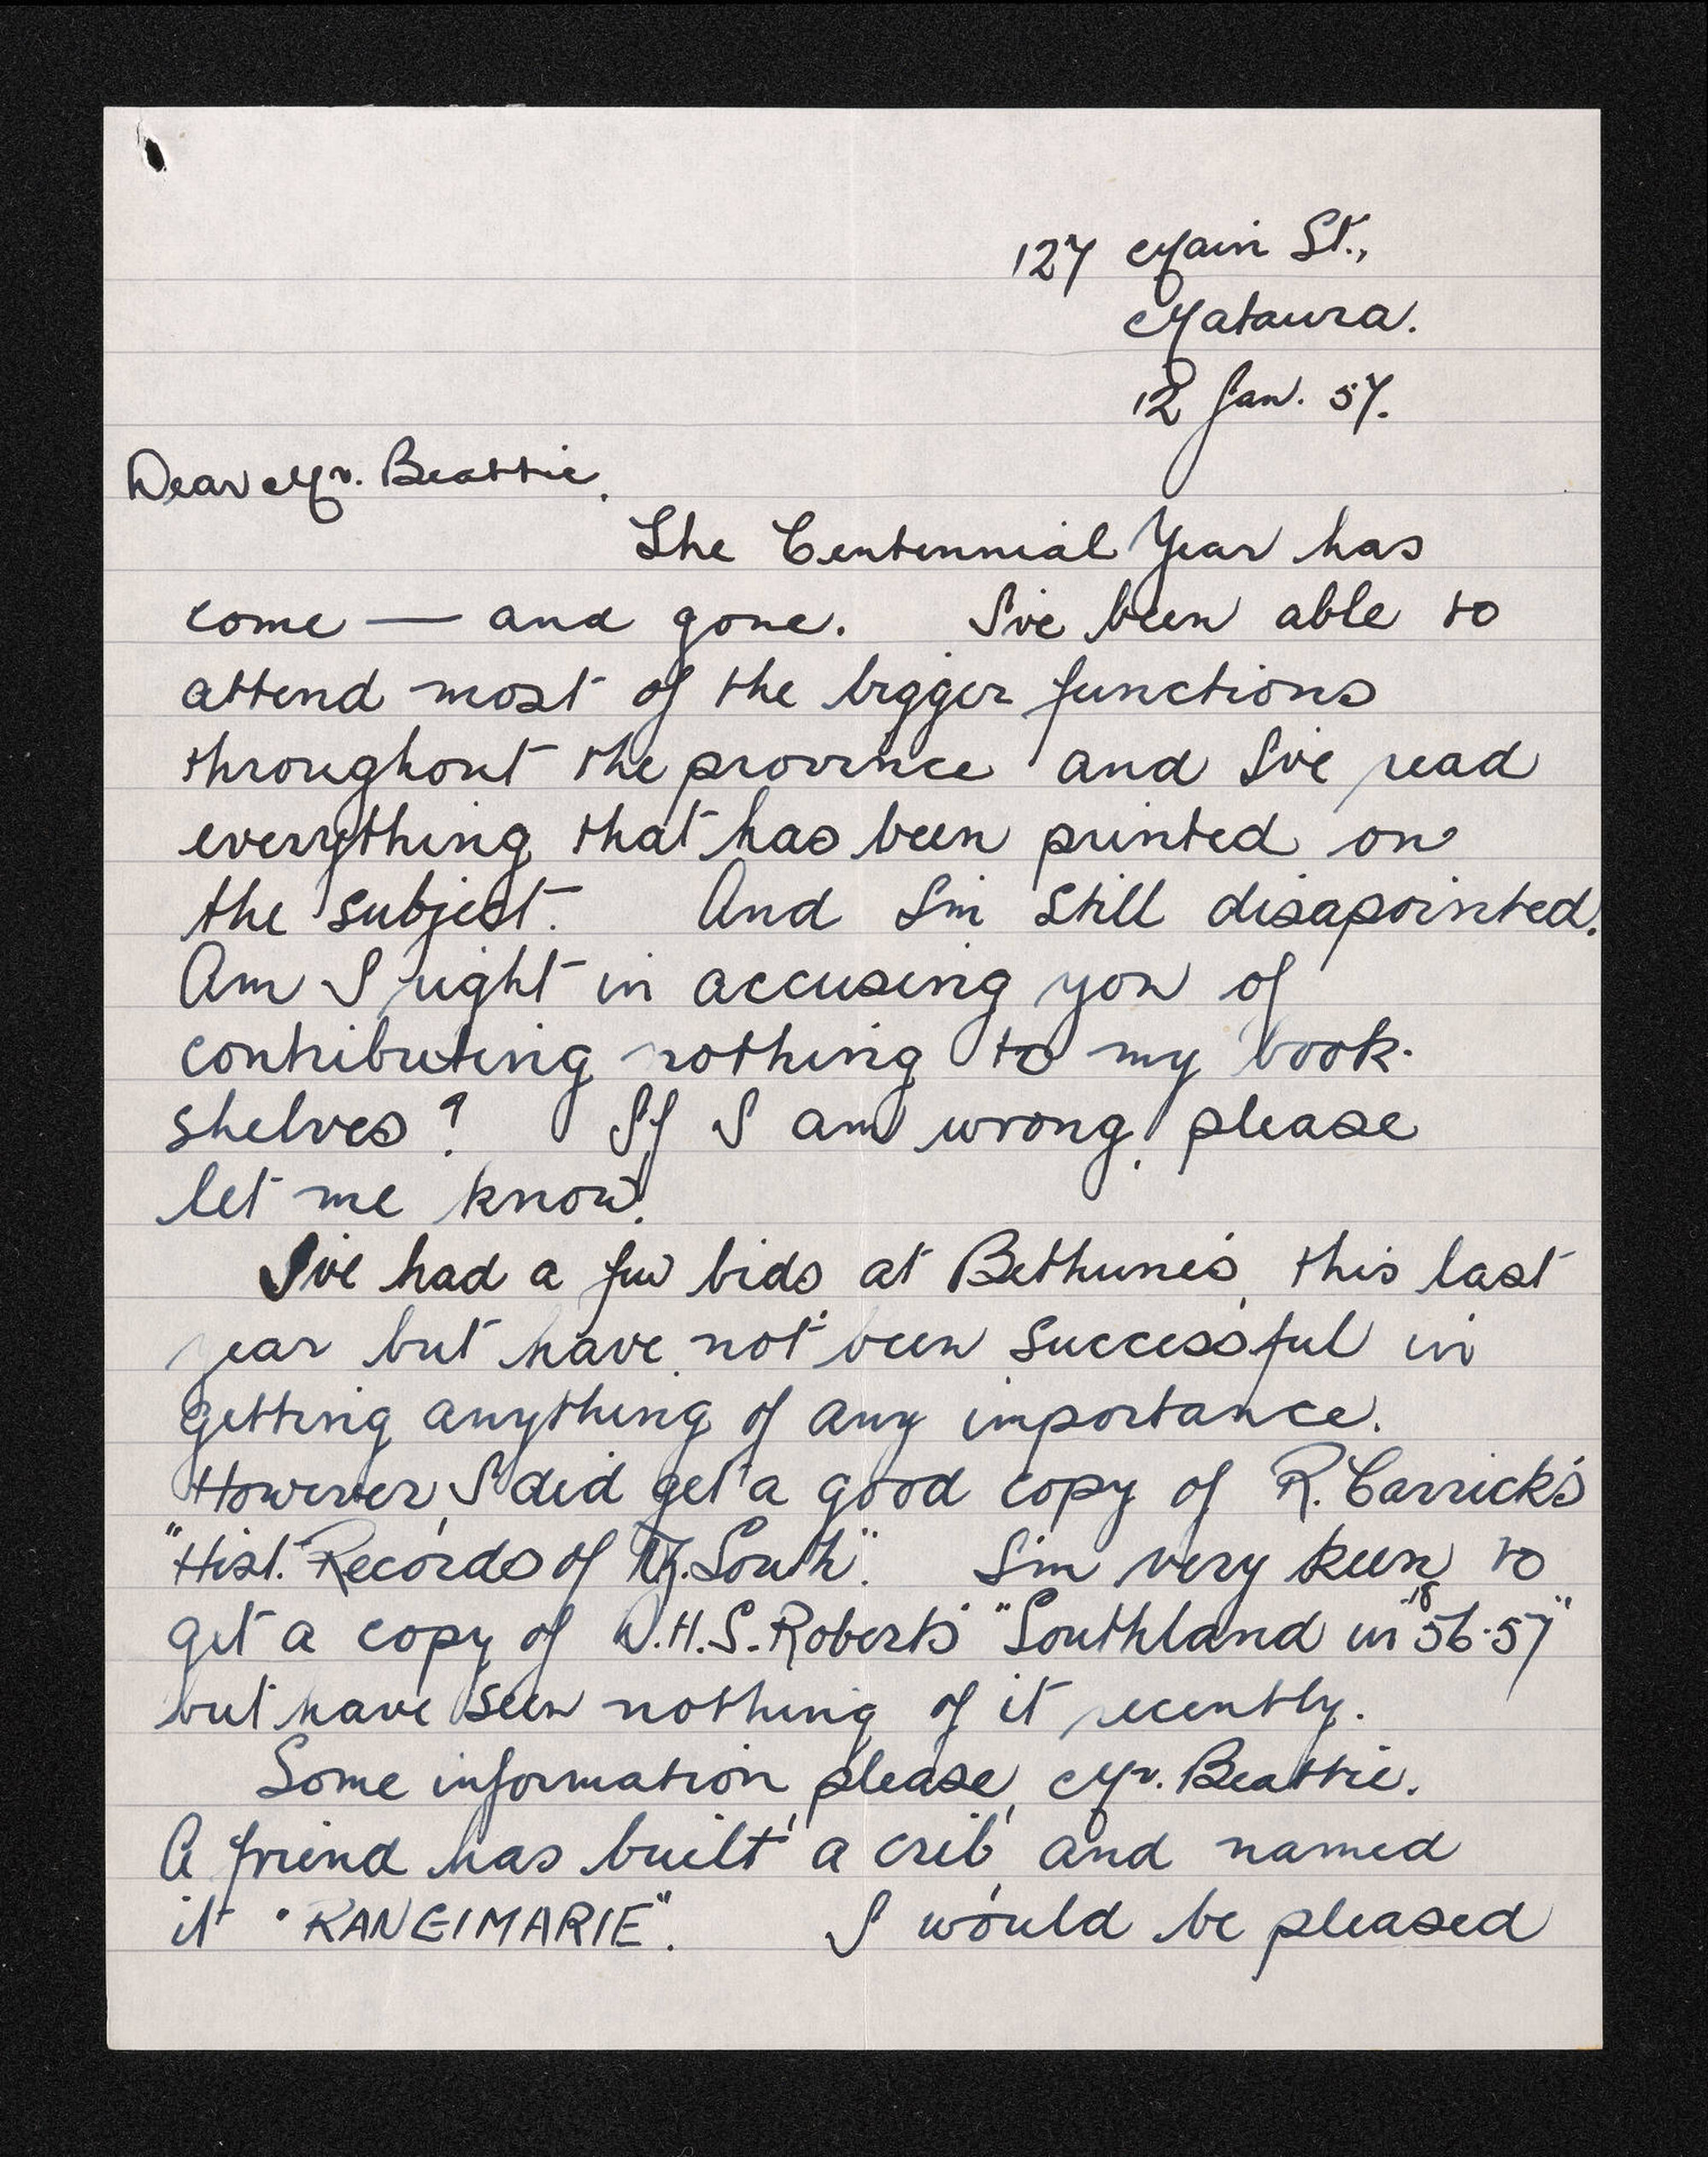 127 Main St.,
Mataura.
12 Jan. 57.
Dear Mr. Beattie,
The Centennial Year has
come — and gone. I've been able to
attend most of the bigger functions
throughout the province and I've read
everything that has been printed on
the subject. And I'm still disapointed.
Am I right in accusing you of
contributing nothing to my book-
shelves? If I am wrong, please
let me know.
I've had a few bids at Bethune's, this last
year but have not been successful in
getting anything of any importance.
However, I did get a good copy of R. Carrick's
"Hist. Records of N.Z. South". I'm very keen to
get a copy of W.H.S. Roberts' "Southland in 1856-57"
but have seen nothing of it recently.
Some information please, Mr. Beattie.
A friend has built 'a crib' and named
it "RANGIMARIE". I would be pleased